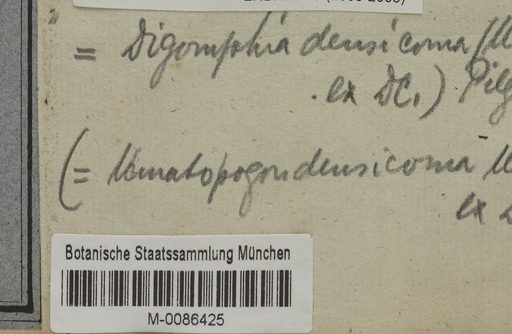 = Digomphia densicoma (M
ex DC.) Pilg
(= Nematopogon densicoma M
ex D
Botanische Staatssammlung München
M-0086425